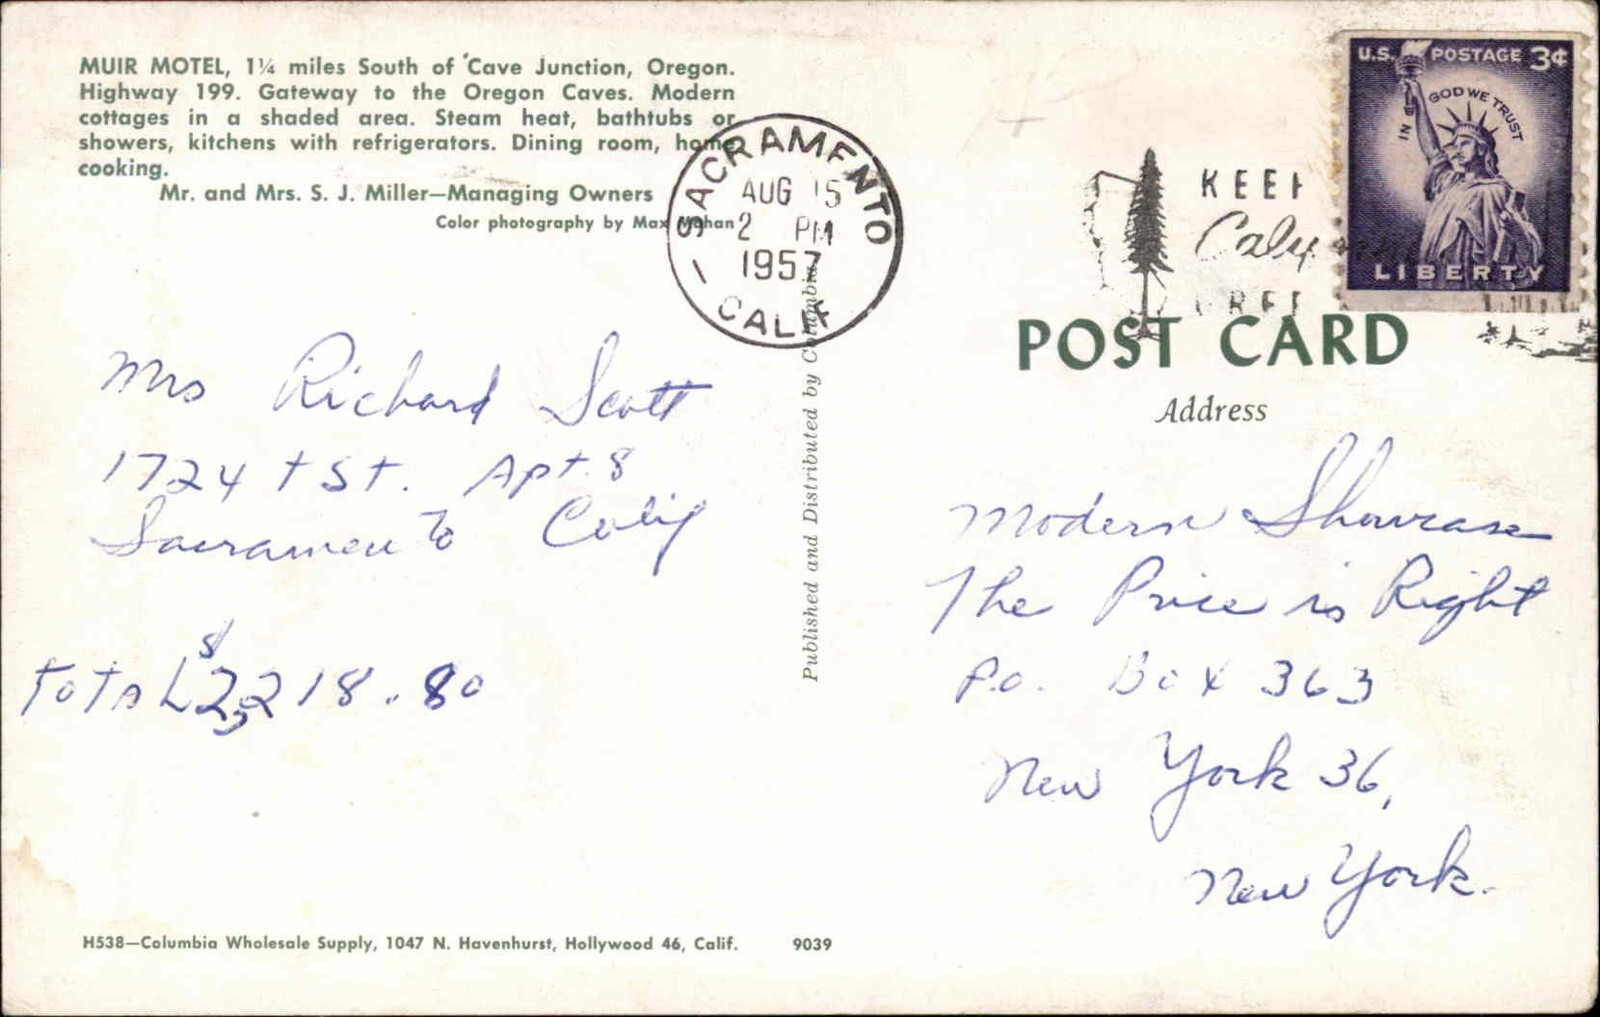 MUIR MOTEL, 1¼ miles South of Cave Junction, Oregon.
Highway 199. Gateway to the Oregon Caves. Modern
cottages in a shaded area. Steam heat, bathtubs or
showers, kitchens with refrigerators. Dining room, home
cooking.
Mr. and Mrs. S. J. Miller—Managing Owners
Color photography by Max Mahan
SACRAMENTO
AUG 15
2 PM
1957
CALIF
KEEP
U.S. POSTAGE 3¢
IN GOD WE TRUST
LIBERTY
POST CARD
Address
Mrs Richard Scott
1724 t St. Apt. 8
Sacramento Calif
Total $2,218.80
Published and Distributed by Columbia
Modern Showcase
The Price is Right
P.O. Box 363
New York 36,
New York.
H538—Columbia Wholesale Supply, 1047 N. Havenhurst, Hollywood 46, Calif. 9039